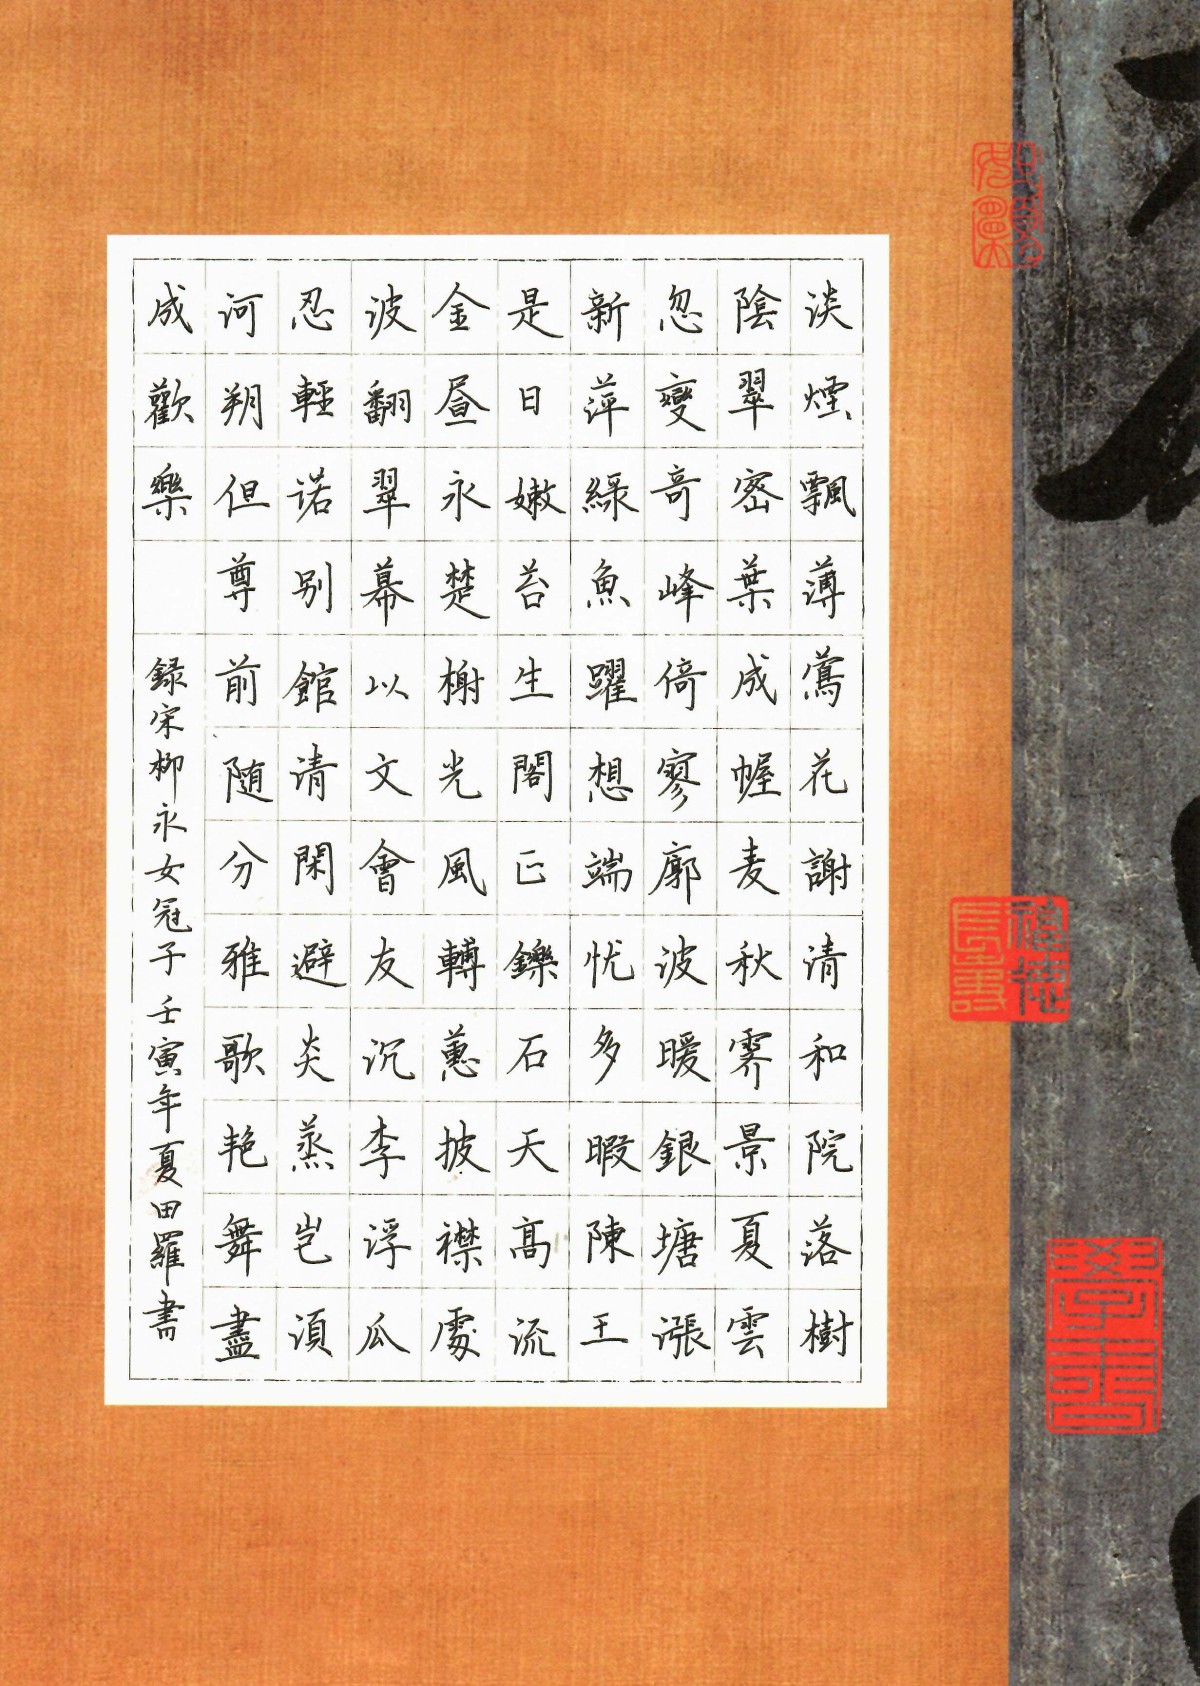 淡煙飄薄鶯花謝清和院落樹
陰翠密葉成幄麦秋霽景夏雲
忽變奇峰倚寥廓波暖銀塘漲
新萍綠魚躍想端忧多暇陳王
是日嫩苔生閣正鑠石天高流
金昼永楚榭光風轉蕙披襟處
波翻翠幕以文會友沉李浮瓜
忍輕诺别館清閑避炎蒸岂須
河朔但尊前随分雅歌艳舞盡
成歡樂
録宋柳永女冠子壬寅年夏田羅書